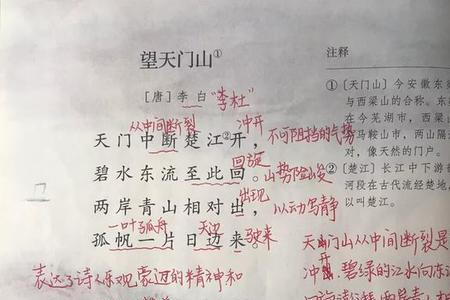 望天门山①
[唐] 李白 "李杜"
从中间断裂 冲开
天门中断楚江②开, 不可阻挡的气势
回旋
碧水东流至此回。山势险峻
出现
两岸青山相对出, 以动写静
一叶孤舟 天边
孤帆一片日边来。驶来
表达了诗人乐观豪迈的精神和
注释
①[天门山] 今安徽东
与西梁山的合称。东
在今芜湖市,西梁山
马鞍山市,两山隔
对,像天然的门户。
②[楚江] 长江中下游
河段在古代流经楚地,
以叫楚江。
天门山从中间断裂是
冲开, 碧绿的江水向东